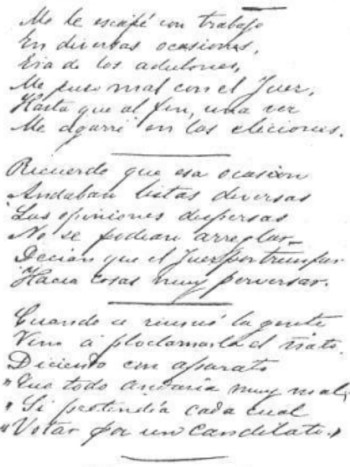 Me le escapé con trabajo
En diversas ocasiones,
Era de los adulones,
Me puso mal con el Juez,
Hasta que al fin, una vez
Me agarró en las eleciones.
Recuerdo que esa ocasion
Andaban listas diversas
Las opiniones dispersas
No se podian arreglar_
Decian que el Juez por triunfar
Hacia cosas muy perversas.
Cuando se riunió la gente
Vino á ploclamarla el ñato
Diciendo con aparato
"Que todo andaria muy mal,
"Si pretendia cada cual
"Votar por un candilato."